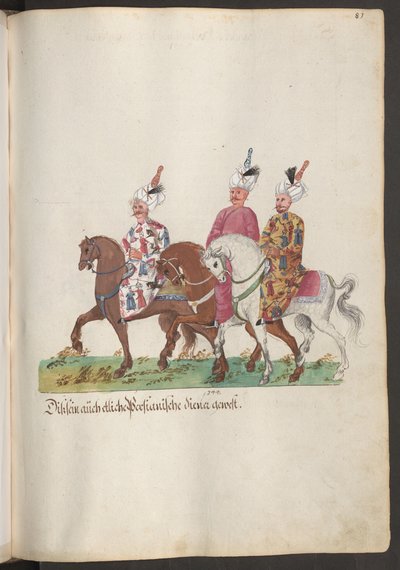 81
144.
Disse̅in auch etliche Persianische diener gewest.